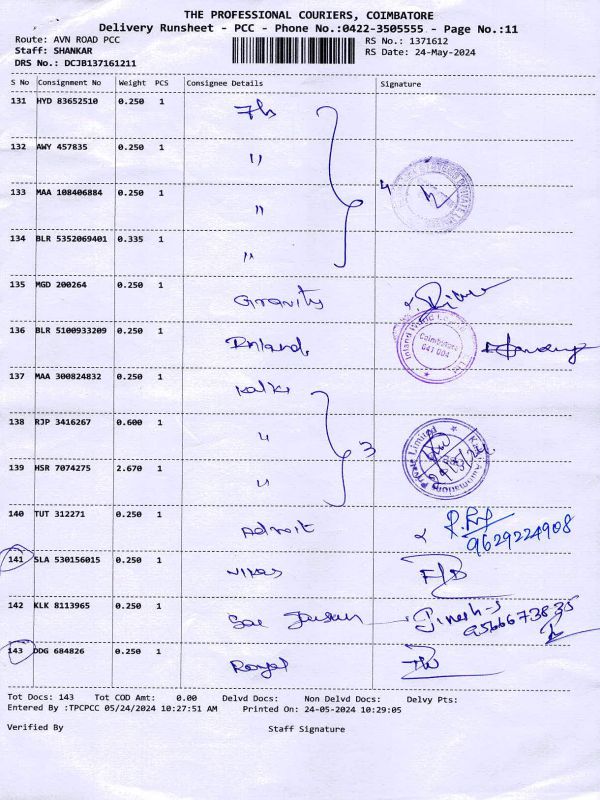 THE PROFESSIONAL COURIERS, COIMBATORE
Delivery Runsheet - PCC - Phone No.:0422-3505555 - Page No.:11
Route: AVN ROAD PCC
RS No.: 1371612
Staff: SHANKAR
RS Date: 24-May-2024
DRS No.: DCJB137161211
S No Consignment No Weight PCS Consignee Details Signature
131 HYD 83652510 0.250 1
132 AWY 457835 0.250 1 "
133 MAA 108406884 0.250 1 "
134 BLR 5352069401 0.335 1 "
4
135 MGD 200264 0.250 1 Gravity
136 BLR 5100933209 0.250 1 Inland
Coimbatore
641 004
137 MAA 300824832 0.250 1 Kalki
138 RJP 3416267 0.600 1 "
3
139 HSR 7074275 2.670 1 "
140 TUT 312271 0.250 1 Adroit
9629224908
141 SLA 530156015 0.250 1 Vikas
142 KLK 8113965 0.250 1 Sai
Jinesh-S
9566673835
143 DDG 684826 0.250 1 Royal
Tot Docs: 143 Tot COD Amt: 0.00 Delvd Docs: Non Delvd Docs: Delvy Pts:
Entered By :TPCPCC 05/24/2024 10:27:51 AM Printed On: 24-05-2024 10:29:05
Verified By Staff Signature